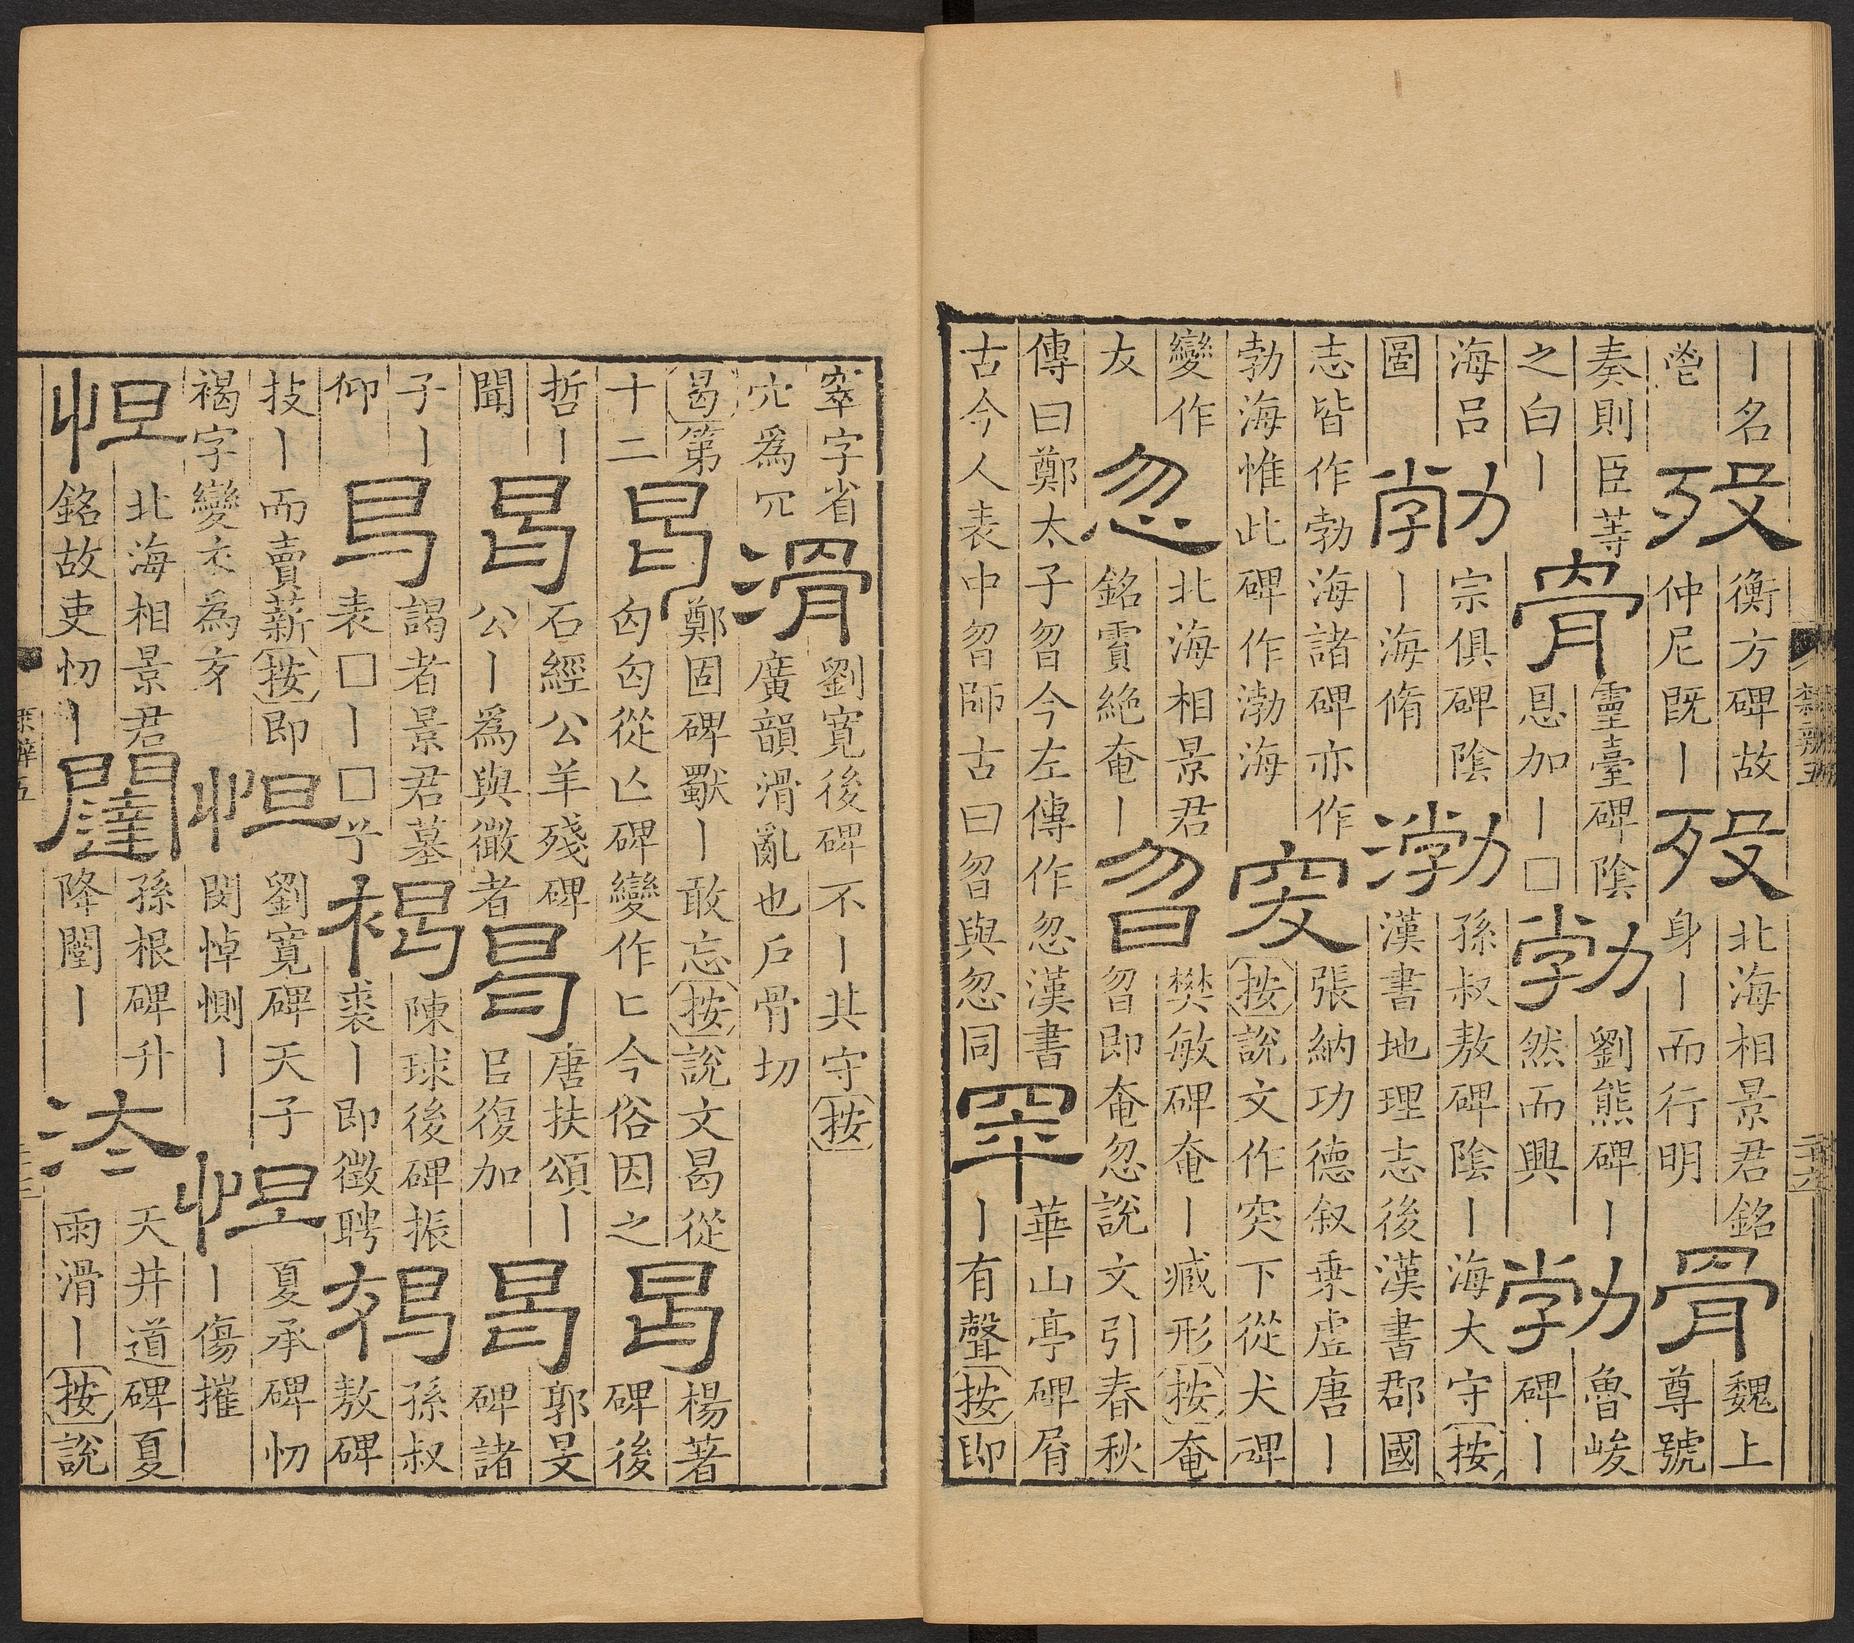 丨名
歿
衡方碑故
仲尼既丨
歿
北海相景君銘
身丨而行明
骨
魏上
尊號
奏則臣等
之白丨
骨
靈臺碑陰
恩加丨□
勃
劉熊碑丨
然而興
勃
魯峻
碑丨
海呂
圖
勃
宗俱碑陰
丨海脩
渤
孫叔敖碑陰丨海大守按
漢書地理志後漢書郡國
志皆作勃海諸碑亦作
勃海惟此碑作渤海
突
張納功德叙乗虛唐丨
按說文作突下從犬碑
變作
犮
忽
北海相景君
銘霣絶奄丨
曶
樊敏碑奄丨臧形按奄
曶即奄忽說文引春秋
傳曰鄭太子曶今左傳作忽漢書
古今人表中曶師古曰曶與忽同
罕
華山亭碑屑
丨有聲按即
隸辨五
窣字省
穴為冗
滑
劉寬後碑不丨其守按
廣韻滑亂也戶骨切
曷第
十二
曷
鄭固碑獸丨敢忘按說文曷從
匃匃從亾碑變作匕今俗因之
曷
楊著
碑後
哲丨
聞
曷
石經公羊殘碑
公丨為與微者
曷
唐扶頌丨
㠯復加
曷
郭旻
碑諸
子丨
仰
曷
謁者景君墓
表□丨□兮
褐
陳球後碑振
裘丨即徵聘
褐
孫叔
敖碑
技丨而賣薪按即
褐字變衣為亥
怛
劉寬碑天子
閔悼惻丨
怛
夏承碑忉
丨傷摧
怛
北海相景君
銘故吏忉丨
闥
孫根碑升
降闥丨
泰
天井道碑夏
雨滑丨按說
隸辨五